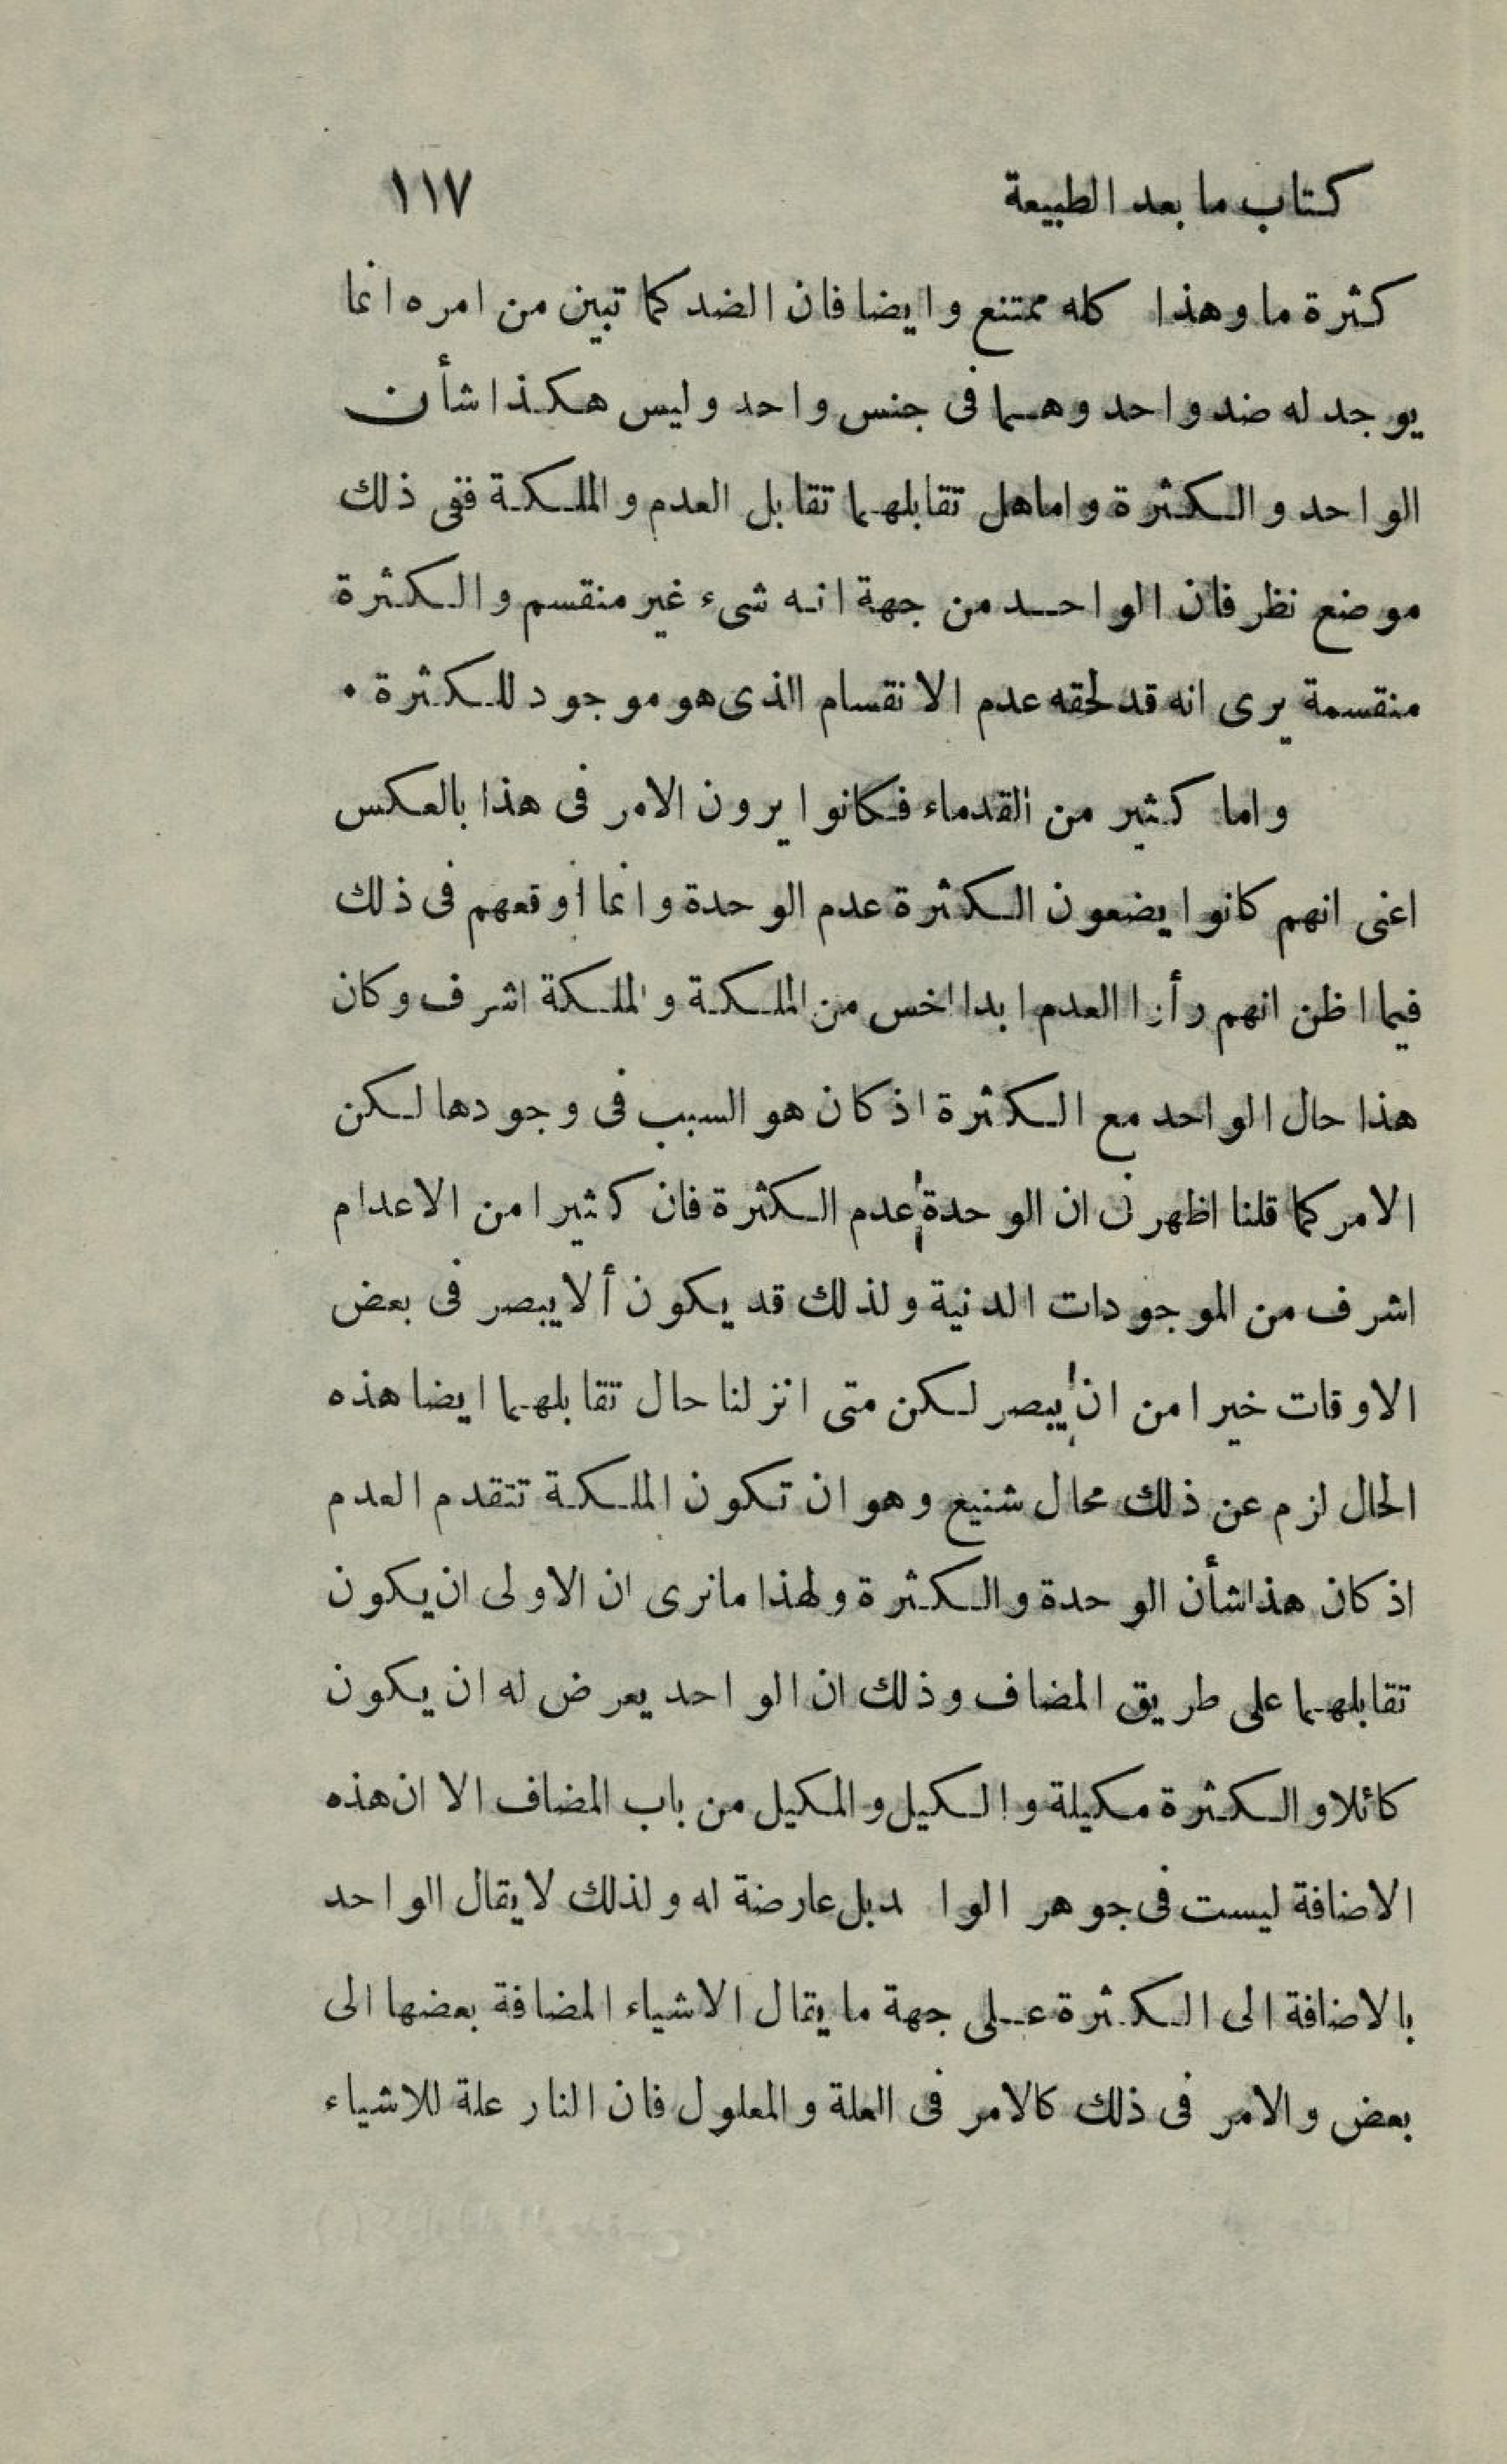 كتاب ما بعد الطبيعة ١١٧
كثرة ما وهذا كله ممتنع وايضا فان الضد كما تبين من امره انما
يوجد له ضد واحد وهما فى جنس واحد وليس هكذا شأن
الواحد والكثرة واما هل تقابلهما تقابل العدم والملكة ففى ذلك
موضع نظر فان الواحد من جهة انه شىء غير منقسم والكثرة
منقسمة يرى انه قد لحقه عدم الانقسام الذى هو موجود للكثرة ٠
واما كثير من القدماء فكانوا يرون الامر فى هذا بالعكس
اعنى انهم كانوا يضعون الكثرة عدم الوحدة وانما أوقعهم فى ذلك
فيما اظن انهم رأوا العدم ابدا اخس من الملكة والملكة اشرف وكان
هذا حال الواحد مع الكثرة اذ كان هو السبب فى وجودها لكن
الامر كما قلنا اظهر ان الوحدة عدم الكثرة فان كثيرا من الاعدام
اشرف من الموجودات الدنية ولذلك قد يكون ألا يبصر فى بعض
الاوقات خيرا من ان يبصر لكن متى انزلنا حال تقابلهما ايضا هذه
الحال لزم عن ذلك محال شنيع وهو ان تكون الملكة تتقدم العدم
اذ كان هذا شأن الوحدة والكثرة ولهذا ما نرى ان الاولى ان يكون
تقابلهما على طريق المضاف وذلك ان الواحد يعرض له ان يكون
كائلا والكثرة مكيلة والكيل والمكيل من باب المضاف الا ان هذه
الاضافة ليست فى جوهر الوا د بل عارضة له ولذلك لا يقال الواحد
بالاضافة الى الكثرة على جهة ما يقال الاشياء المضافة بعضها الى
بعض والامر فى ذلك كالامر فى العلة والمعلول فان النار علة للاشياء